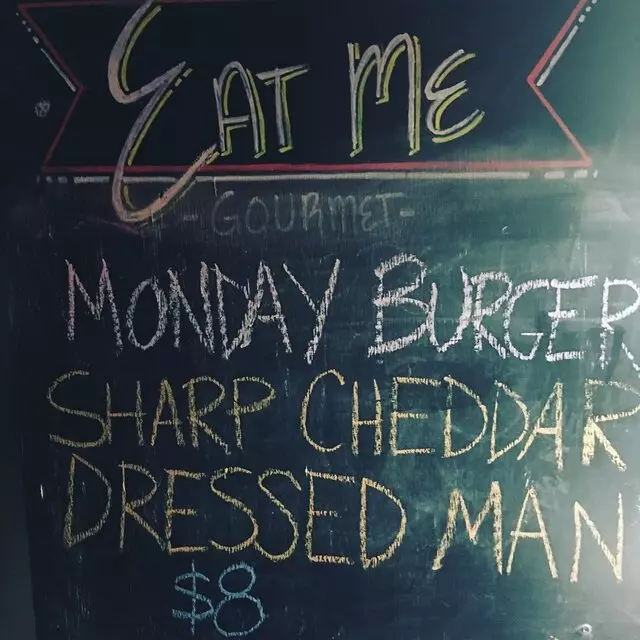 EAT ME
-GOURMET-
MONDAY BURGER
SHARP CHEDDAR
DRESSED MAN
$8